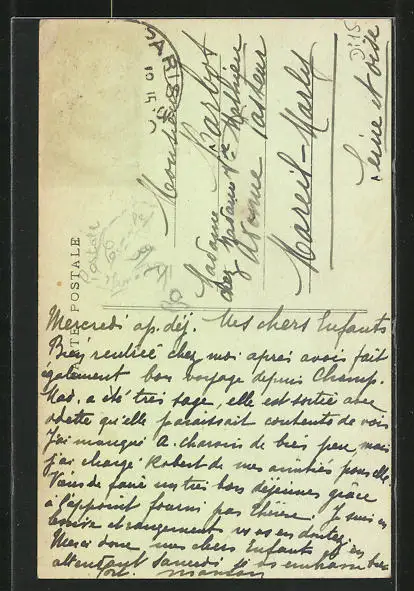 PARIS
CARTE POSTALE
Monsieur
Madame Barbot
chez Madame Vve Mathieu
Avenue Pasteur
Mareil-Marly
Seine et Oise
Mercredi ap. déj. Mes chers Enfants
Bien rentrée chez moi après avoir fait
également bon voyage depuis Champ.
Mad. a été très sage, elle est sortie avec
Odette qu'elle paraissait contente de voir
J'ai manqué A. de bien peu, mais
j'ai chargé Robert de mes amitiés pour elle.
Viens de faire un très bon déjeuner grâce
à l'appoint fourni par Je suis en
et rangement vs vs en doutez.
Merci donc mes chers Enfants et en
attendant samedi je vs embrasse bien
fort. maman